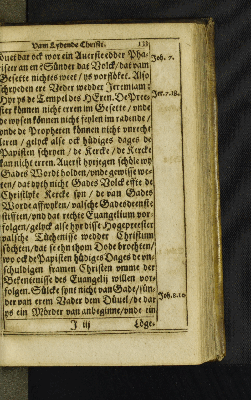 Vam Lydende Christi. 133
Düuel dar ock wor ein Auerste edder Pha-
riseer an en? Sünder das Volck / dat vam
Gesette nichtes weet / ys vorflöket. Also
schryeden ere Veder wedder Jeremiam:
Hyr ys de Tempel des HEren. De Pree-
ster können nicht erren im Gesette / vnde
de wysen können nicht feylen im radende /
vnde de Propheten können nicht vnrecht
leren / gelyck alse ock hüdiges dages de
Papisten schryen / de Kercke / de Kercke
kan nicht erren. Auerst hyriegen schöle wy
Gades Wordt holden / vnde gewisse we-
ten / dat dyth nicht Gades Volck effte de
Christlyke Kercke syn / de van Gades
Worde affwyken / valsche Gadesdenste
stifften / vnd dat rechte Euangelium vor-
folgen / gelyck alse hyr disse Hogepreester
valsche Tüchenisse wedder Christum
söchten / dat se ehn thom Dode brochten /
wo ock de Papisten hüdiges Dages de vn-
schuldigen framen Christen vmme der
Bekentenisse des Euangelij willen vor-
folgen. Sülcke synt nicht van Gade / sün-
der van erem Vader dem Düuel / de dar
ys ein Mörder van anbeginne / vnde ein
J iij Löge-
Joh. 7.
Jer. 7. 18.
Joh. 8. 10